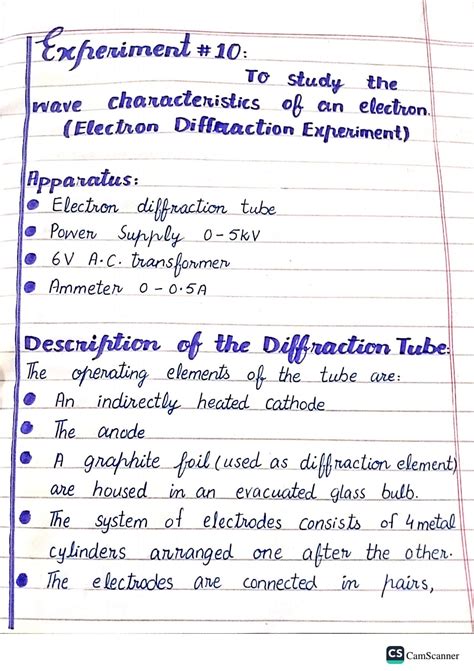 Experiment #10:
To study the
wave characteristics of an electron.
(Electron Diffraction Experiment)
Apparatus:
• Electron diffraction tube
• Power Supply 0-5kV
• 6V A.C. transformer
• Ammeter 0-0.5A
Description of the Diffraction Tube:
The operating elements of the tube are:
• An indirectly heated cathode
• The anode
• A graphite foil (used as diffraction element)
are housed in an evacuated glass bulb.
• The system of electrodes consists of 4 metal
cylinders arranged one after the other.
• The electrodes are connected in pairs,
CS CamScanner